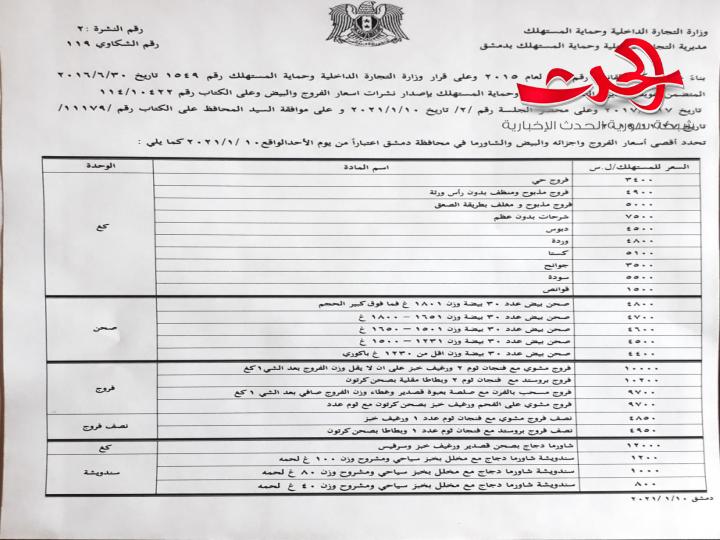 وزارة التجارة الداخلية وحماية المستهلك
مديرية التجارة الداخلية وحماية المستهلك بدمشق
رقم النشرة : ٢
رقم الشكاوي ١١٩
الحدث
شبكة سورية الحدث الإخبارية
بناءً لعام ٢٠١٥ وعلى قرار وزارة التجارة الداخلية وحماية المستهلك رقم ١٥٤٩ تاريخ ٢٠١٦/٦/٣٠
المتضمن وحماية المستهلك بإصدار نشرات اسعار الفروج والبيض وعلى الكتاب رقم ١١٤/١٠٤٢٢
تاريخ الجلسة رقم /٢/ تاريخ ٢٠٢١/١/١٠ و على موافقة السيد المحافظ على الكتاب رقم /١١١٧٩/
تاريخ
تحدد أقصى أسعار الفروج واجزائه والبيض والشاورما في محافظة دمشق اعتباراً من يوم الأحدالواقع ١٠ /٢٠٢١/١ كما يلي :
السعر للمستهلك/ل.س اسم المادة الوحدة
٣٤٠٠ فروج حي
٤٩٠٠ فروج مذبوح ومنظف بدون رأس ورثة
٥٠٠٠ فروج مذبوح و مغلف بطريقة الصعق
٧٥٠٠ شرحات بدون عظم
٤٥٠٠ دبوس
٤٨٠٠ وردة
٥١٠٠ كستا
٣٥٠٠ جوانح
٥٥٠٠ سودة
١٥٠٠ قوانص
كغ
٤٨٠٠ صحن بيض عدد ٣٠ بيضة وزن ١٨٠١ غ فما فوق كبير الحجم
٤٧٠٠ صحن بيض عدد ٣٠ بيضة وزن ١٦٥١ – ١٨٠٠ غ
٤٦٠٠ صحن بيض عدد ٣٠ بيضة وزن ١٥٠١ – ١٦٥٠ غ
٤٥٠٠ صحن بيض عدد ٣٠ بيضة وزن ١٢٣١ – ١٥٠٠ غ
٤٤٠٠ صحن بيض عدد ٣٠ بيضة وزن اقل من ١٢٣٠ غ باكوري
صحن
١٠٠٠٠ فروج مشوي مع فنجان ثوم ٢ ورغيف خبز على ان لا يقل وزن الفروج بعد الشي ١ كغ
١٠٢٠٠ فروج بروستد مع فنجان ثوم ٢ وبطاطا مقلية بصحن كرتون
٩٧٠٠ فروج مسحب بالفرن مع صلصة بعبوة قصدير وغطاء وزن الفروج صافي بعد الشي ١ كغ
٩٧٠٠ فروج مشوي على الفحم ورغيف خبز بصحن كرتون مع ثوم عدد
فروج
٤٨٥٠ نصف فروج مشوي مع فنجان ثوم عدد ١ ورغيف خبز
٤٩٥٠ نصف فروج بروستد مع فنجان ثوم عدد ١ وبطاطا بصحن كرتون
نصف فروج
١٢٠٠٠ شاورما دجاج بصحن قصدير ورغيف خبز وسرفيس كغ
١٢٠٠ سندويشة شاورما دجاج مع مخلل بخبز سياحي ومشروح وزن ١٠٠ غ لحمه
١٠٠٠ سندويشة شاورما دجاج مع مخلل بخبز سياحي ومشروح وزن ٨٠ غ لحمه
٨٠٠ سندويشة شاورما دجاج مع مخلل بخبز سياحي ومشروح وزن ٤٠ غ لحمه
سندويشة
دمشق ٢٠٢١/١/١٠